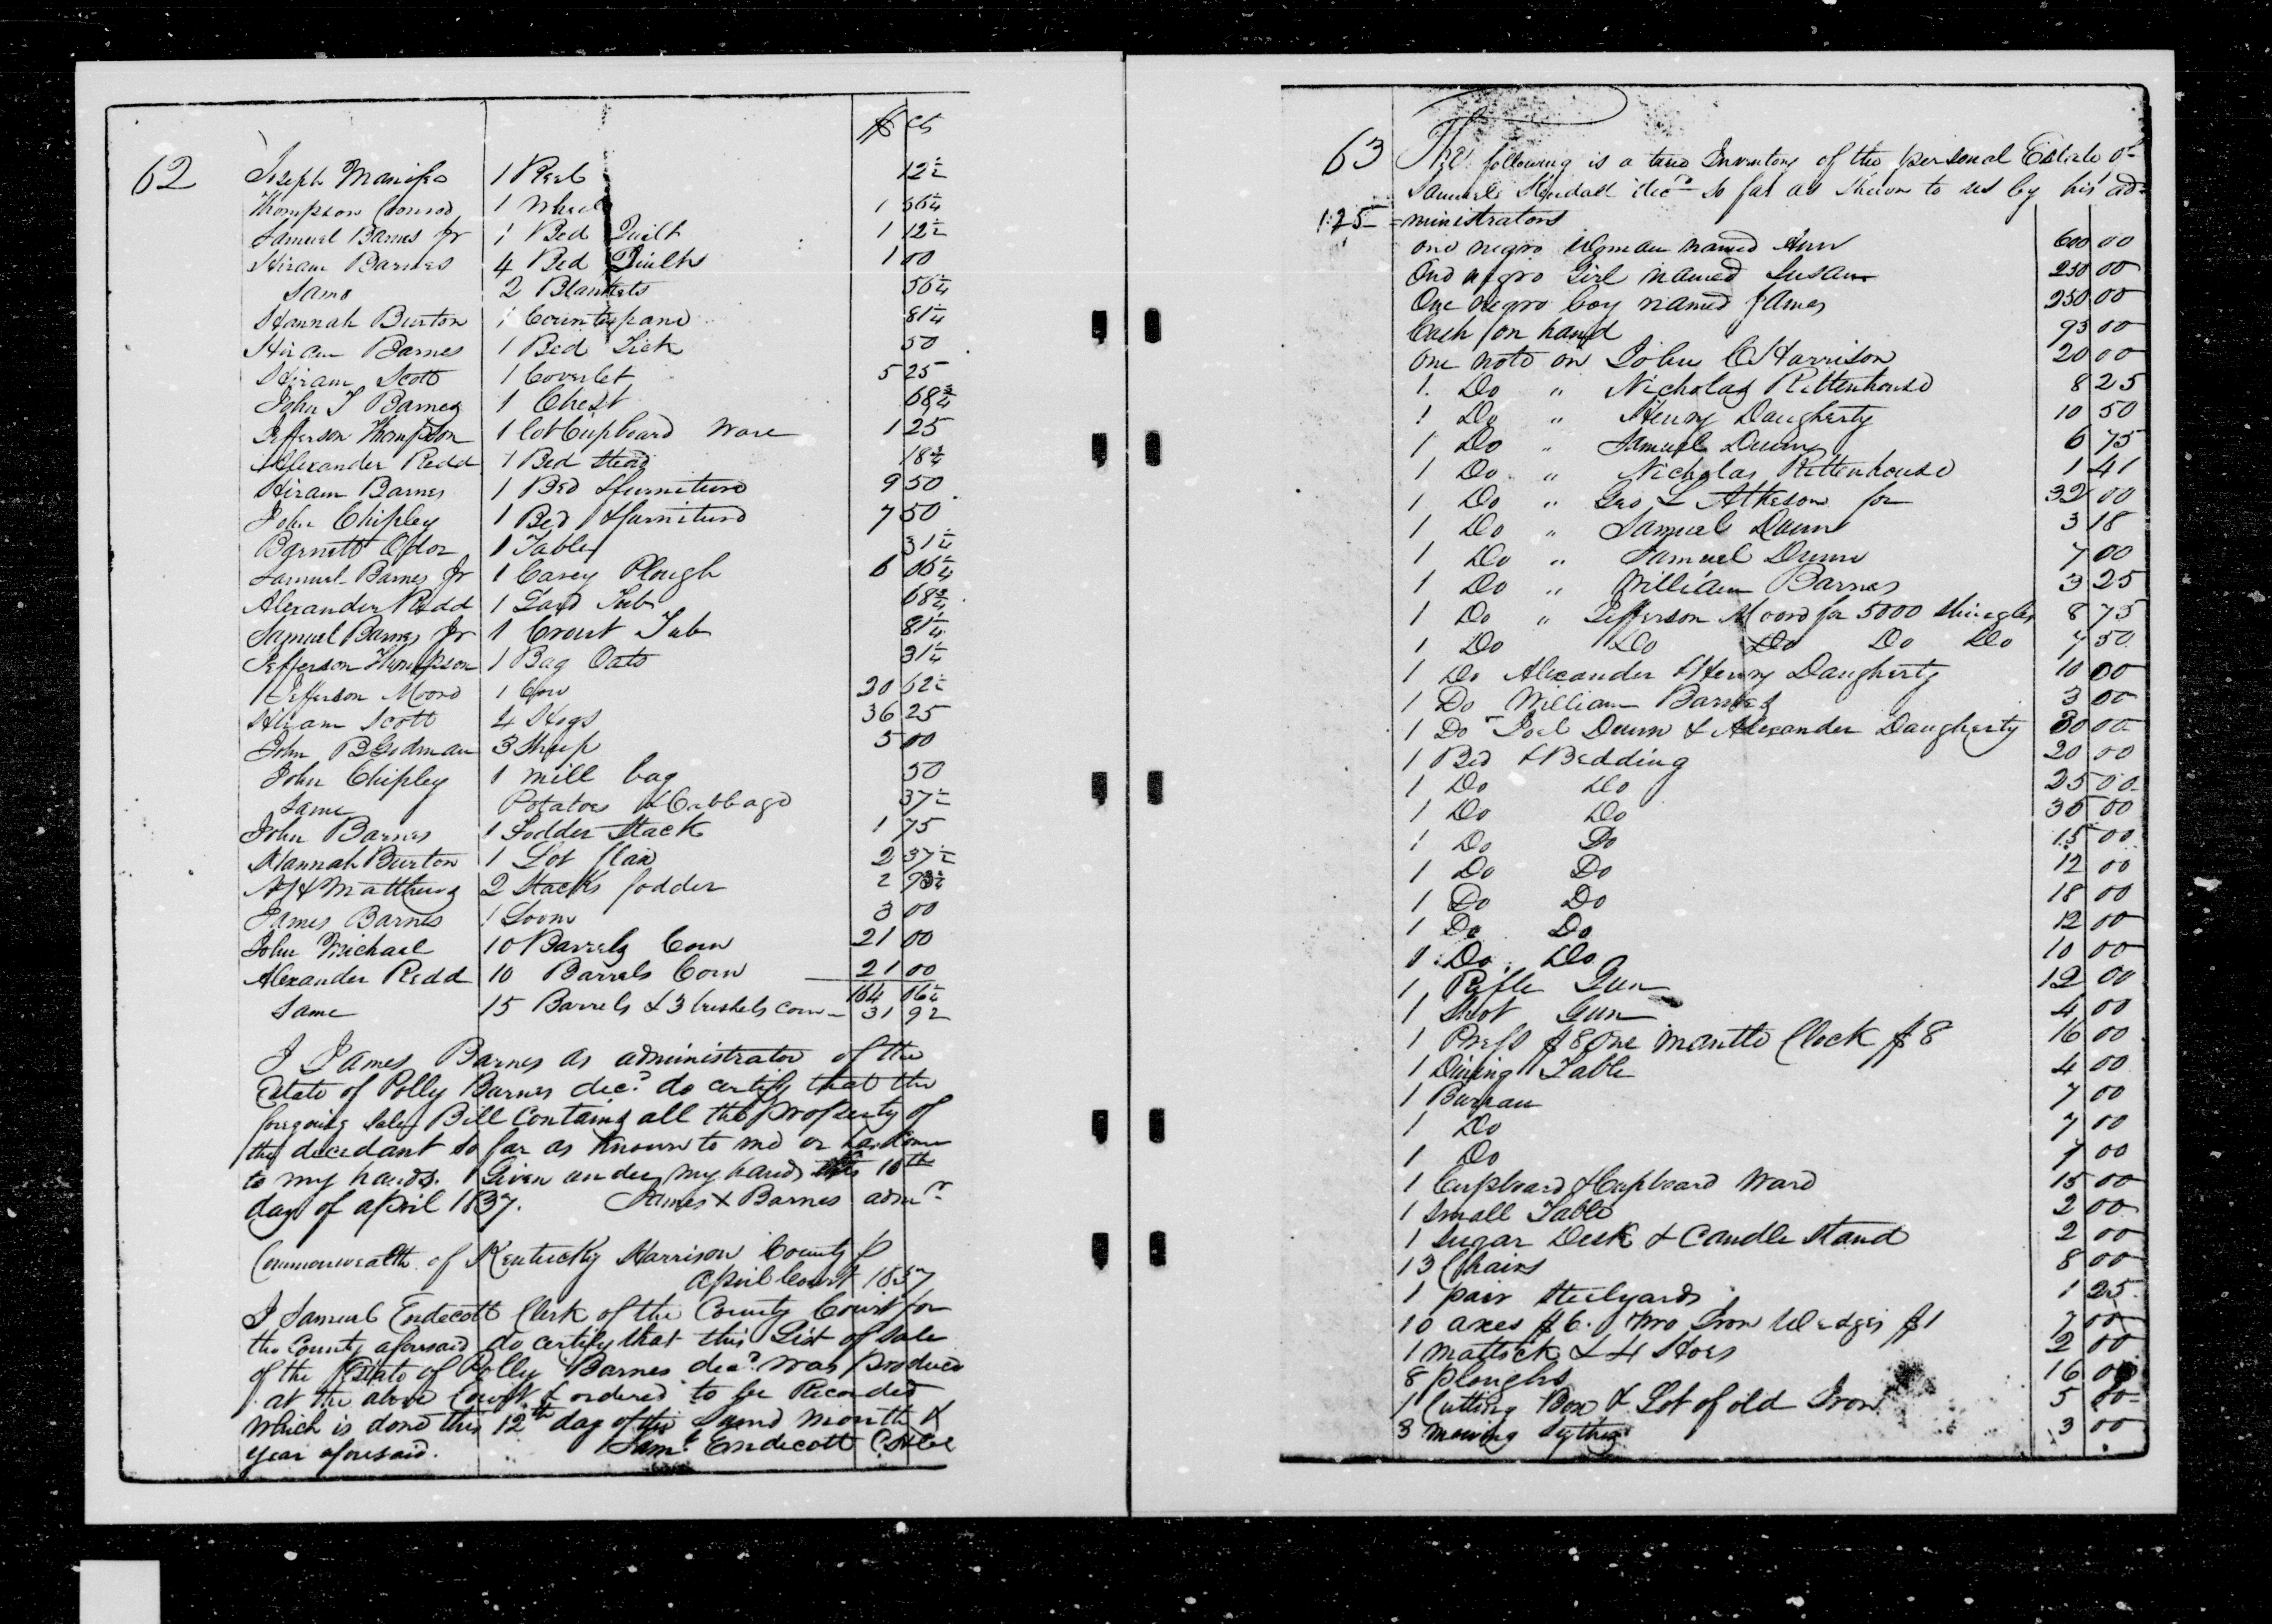 $ cts
62 Joseph Manifee 1 Reel 12½
Thompson Conrod 1 Wheel 1 56¼
Samuel Barnes Jr 1 Bed Quilt 1 12½
Hiram Barnes 4 Bed Quilts 1 00
Same 2 Blankets 56¼
Hannah Burton 1 Counterpane 81¼
Hiram Barnes 1 Bed Tick 50
Hiram Scott 1 Coverlet 5 25
John T Barnes 1 Chest 68¾
Jefferson Thompson 1 lot Cupboard Ware 1 25
Alexander Redd 1 Bed Stead 18¾
Hiram Barnes 1 Bed & furniture 9 50
John Chipley 1 Bed & furniture 7 50
Barnett Odor 1 Table 31¼
Samuel Barnes Jr 1 Carey Plough 6 06¼
Alexander Redd 1 Lard Tub 68¾
Samuel Barnes Jr 1 Crout Tub 81¼
Jefferson Thompson 1 Bag Oats 31¼
Jefferson Moore 1 Cow 20 62½
Hiram Scott 4 Hogs 36 25
John B Godman 3 Sheep 5 00
John Chipley 1 mill bag 50
Same Potatoes & Cabbage 37½
John Barnes 1 Fodder Stack 1 75
Hannah Burton 1 Lot flax 2 37½
Matthews 2 Stacks fodder 2
James Barnes 1 Loom 3 00
John Michael 10 Barrels Corn 21 00
Alexander Redd 10 Barrels Corn 21 00
164 06¼
Same 15 Barrels & 3 bushels corn 31 92
I James Barnes as administrator of the
Estate of Polly Barnes decd do certify that the
foregoing Sale Bill Contains all the property of
the decedant so far as Known to me or has Come
to my hands. Given under my hand this 10th
day of april 1837. James X Barnes admr
Commonwealth of Kentucky Harrison County
April Court 1837
I Samuel Endecott Clerk of the County Court for
the County aforesaid do certify that this List of Sale
of the Estate of Polly Barnes decd was produced
at the above Court & ordered to be Recorded
Which is done this 12th day of the Same month &
year aforesaid. Saml Endecott
63 The following is a true Inventory of the personal Estate of
Samuel Kendall decd so far as Shewn to us by his ad-
125 =ministrators
one negro Woman named Ann 600 00
One negro Girl named Susan 250 00
One negro boy named James 250 00
Cash on hand 93 00
one note on John C Harrison 20 00
1 Do " Nicholas Rittenhouse 8 25
1 Do " Henry Daugherty 10 50
1 Do " Samuel Dunn 6 75
1 Do " Nicholas Rittenhouse 1 41
1 Do " Geo L Atkeson for 32 00
1 Do " Samuel Dunn 3 18
1 Do " Samuel Dunn 7 00
1 Do " William Barnes 3 25
1 Do " Jefferson Moore for 5000 Shingles 8 75
1 Do Do Do Do Do 7 50
1 Do Alexander & Henry Daugherty 10 00
1 Do William Barnes 3 00
1 Do Joel Dunn & Alexander Daugherty 30 00
1 Bed & Bedding 20 00
1 Do Do 25 00
1 Do Do 30 00
1 Do Do 15 00
1 Do Do 12 00
1 Do Do 18 00
1 Do Do 12 00
1 Do Do 10 00
1 Rifle Gun 12 00
1 Shot Gun 4 00
1 Press $8 One mantle Clock $8 16 00
1 Dining Table 4 00
1 Bureau 7 00
1 Do 7 00
1 Do 7 00
1 Cupboard & Cupboard Ware 15 00
1 Small Table 2 00
1 Sugar Desk & Candle Stand 2 00
13 Chairs 8 00
1 pair Steelyards 1 25
10 axes $6. two Iron Wedges $1 7 00
1 Mattock & 4 Hoes 2 00
8 ploughs 16 00
1 Cutting Box & Lot of old Iron 5 00
3 mowing Sythes 3 00